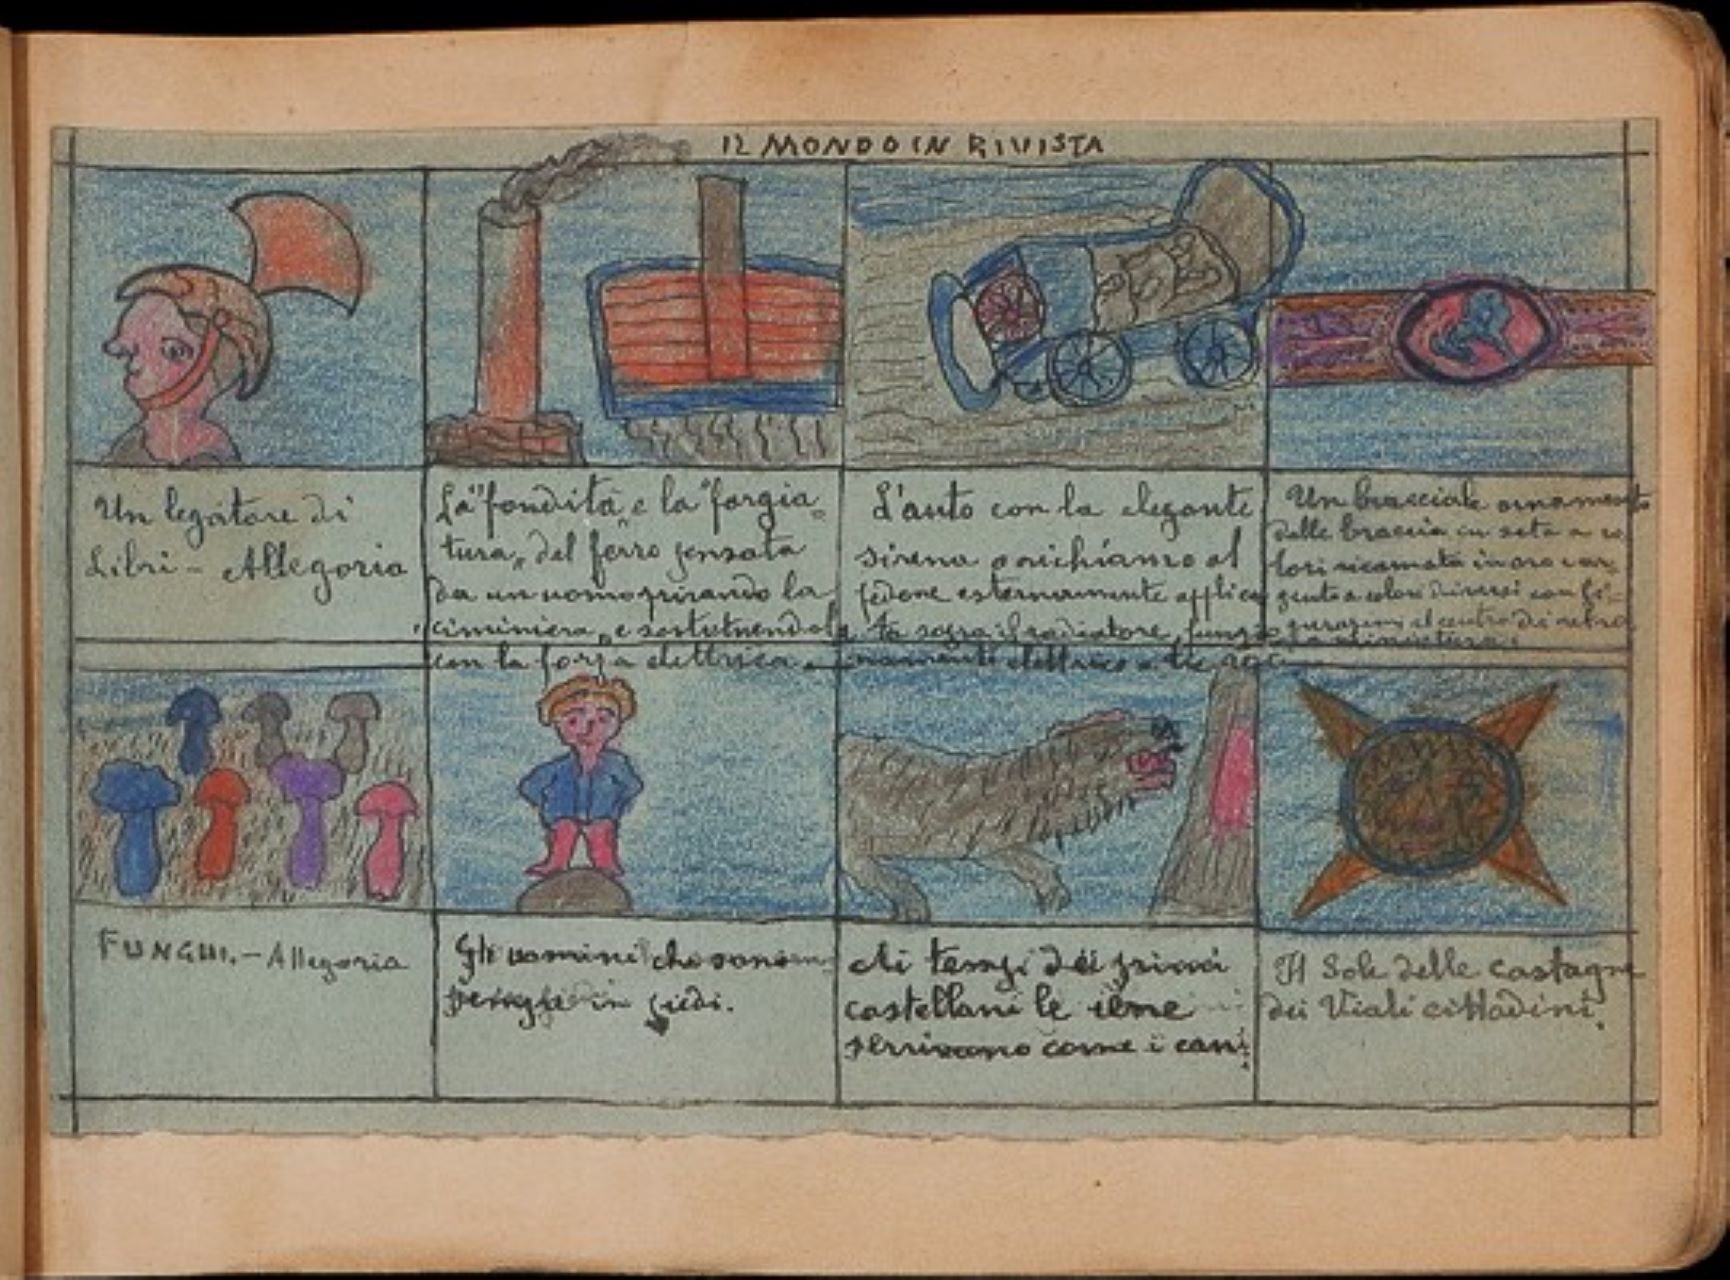 IL MONDO IN RIVISTA
Un legatore di
Libri - Allegoria
La "fondita" e la "forgia
tura" del ferro pensata
da un uomo privando la
ciminiera, e sostutuendola
con la forza elettrica.
L'auto con la elegante
sirena o richiamo al
pedone esternamente applica
ta sopra il radiatore,
elettrico
Un bracciale ornamento
delle braccia in seta a co
lori ricamata in oro e ar
gento a colori diversi con fi-
gurazioni al centro di
miniatura.
FUNGHI. - Allegoria
Gli uomini che sono
sempre in piedi.
Ai tempi dei primi
castellani le iene
servivano come i cani.
Il Sole delle castagne
dei Viali cittadini.